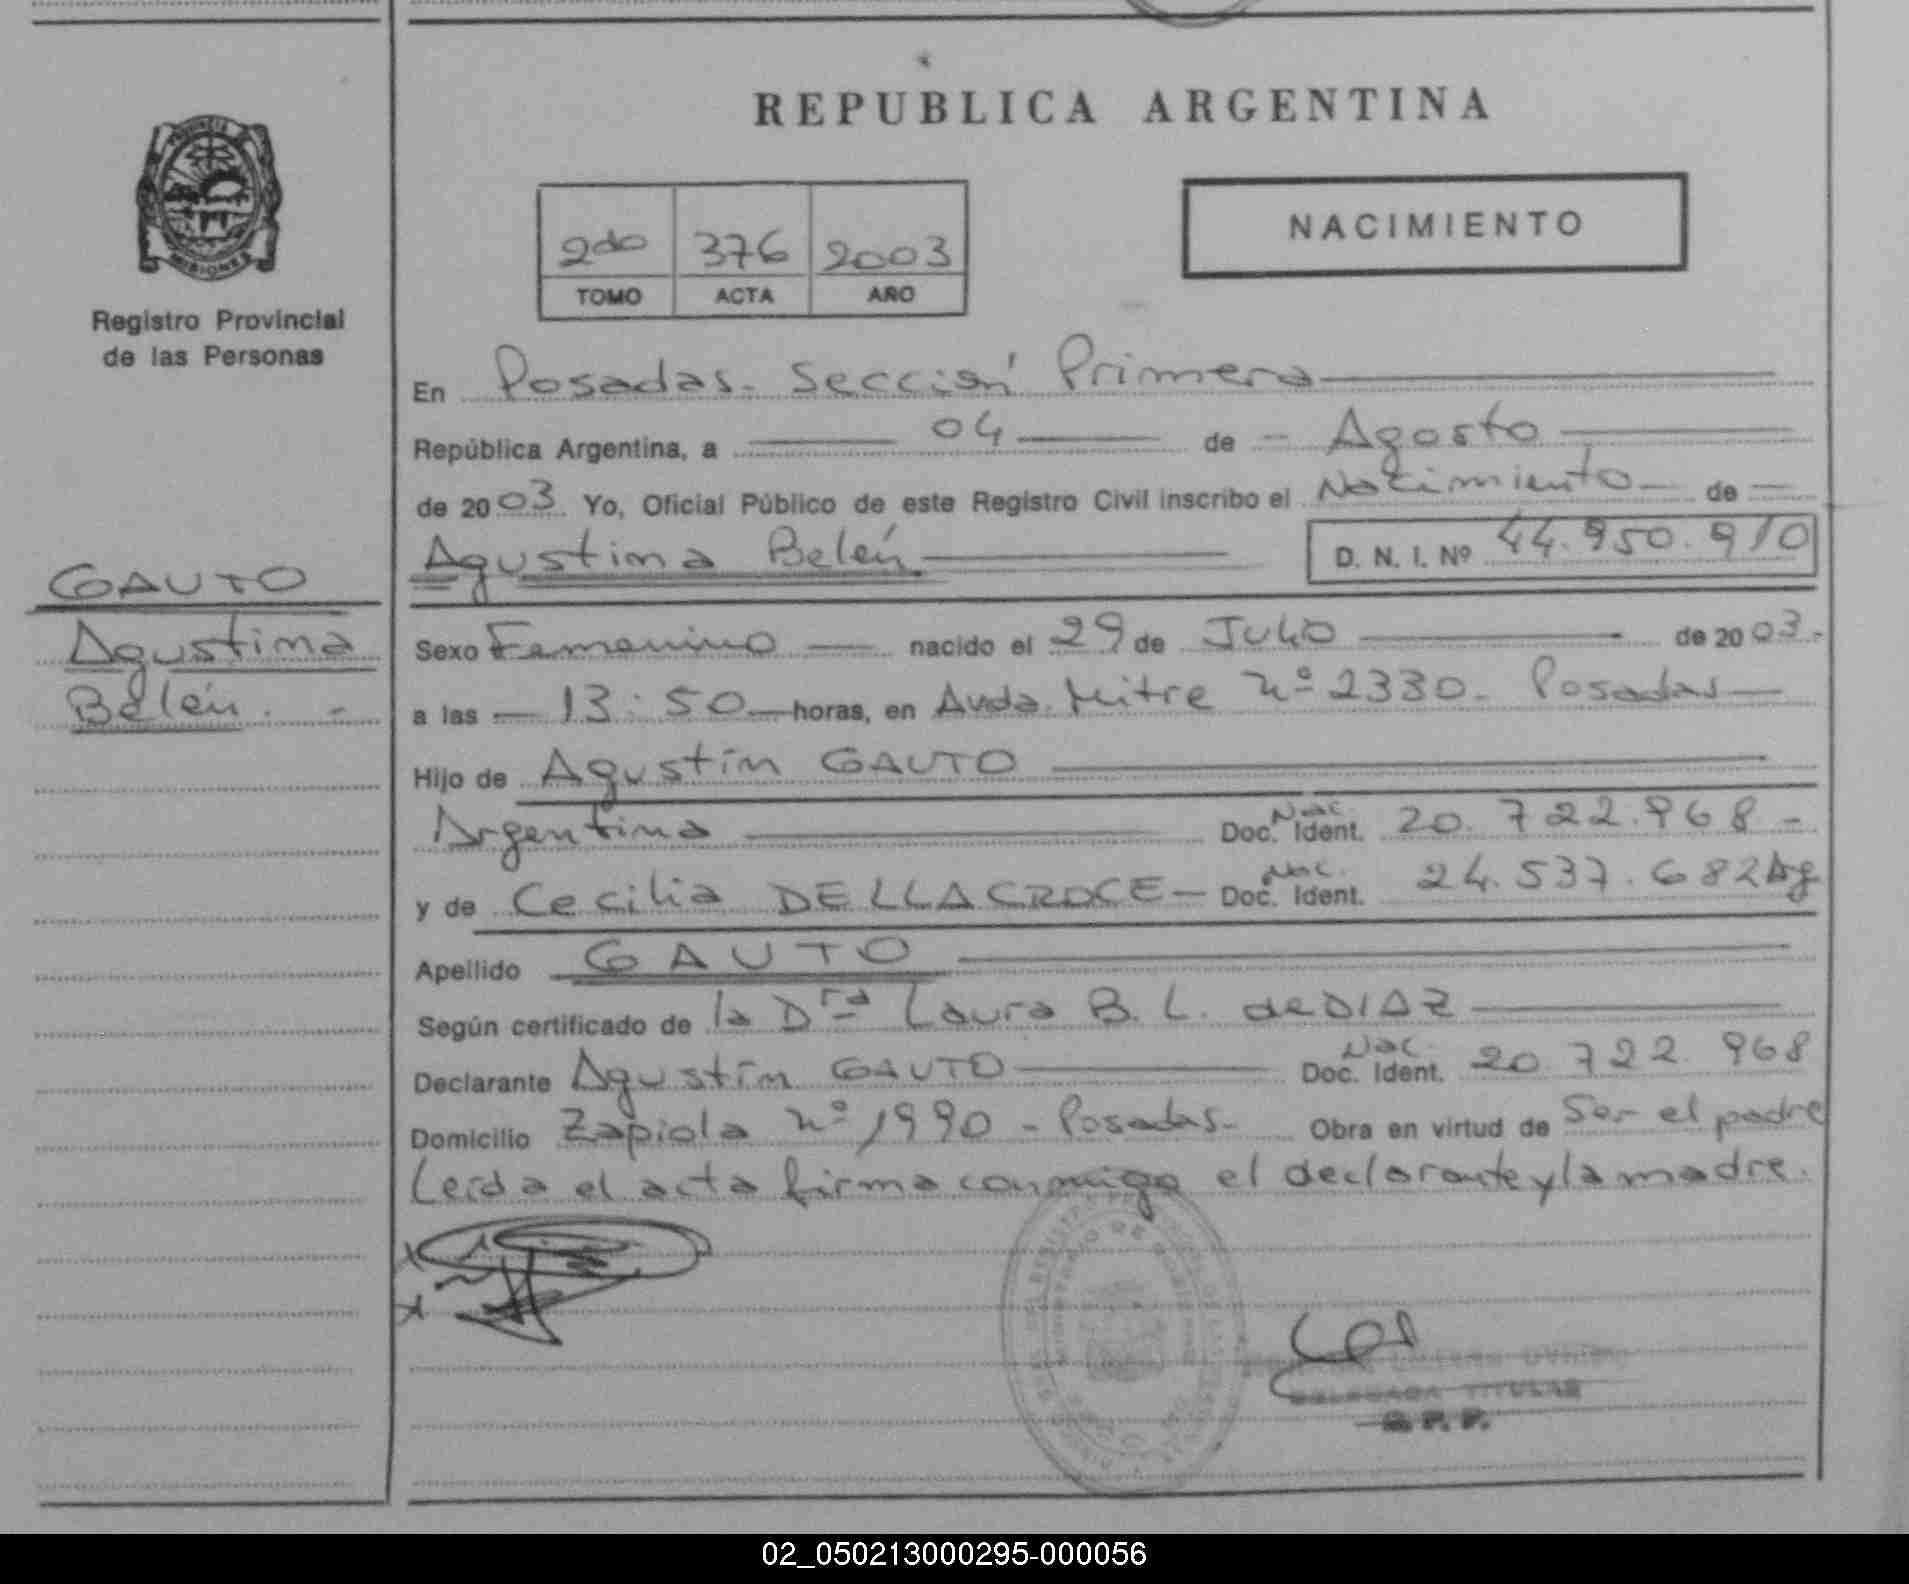 REPUBLICA ARGENTINA
PROVINCIA DE
MISIONES
Registro Provincial
de las Personas
2do 376 2003
TOMO ACTA AÑO
NACIMIENTO
En Posadas - Sección Primera
República Argentina, a 04 de Agosto
de 2003 Yo, Oficial Público de este Registro Civil inscribo el Nacimiento de
Agustina Belén D. N. I. Nº 44.950.910
GAUTO
Agustina
Belén. -
Sexo Femenino nacido el 29 de Julio de 2003.-
a las 13:50 horas, en Avda. Mitre Nº 2330 - Posadas
Hijo de Agustín GAUTO
Argentina Doc. Nac. Ident. 20.722.968 -
y de Cecilia DELLACROCE - Doc. Nac. Ident. 24.537.682 Ag
Apellido GAUTO
Según certificado de la Dra Laura B. L. de DIAZ
Declarante Agustín GAUTO Doc. Nac. Ident. 20.722.968
Domicilio Zapiola Nº 1990 - Posadas - Obra en virtud de Ser el padre
Leída el acta firma conmigo el declarante y la madre.
DELEGADA TITULAR
R.P.P.
02_050213000295-000056